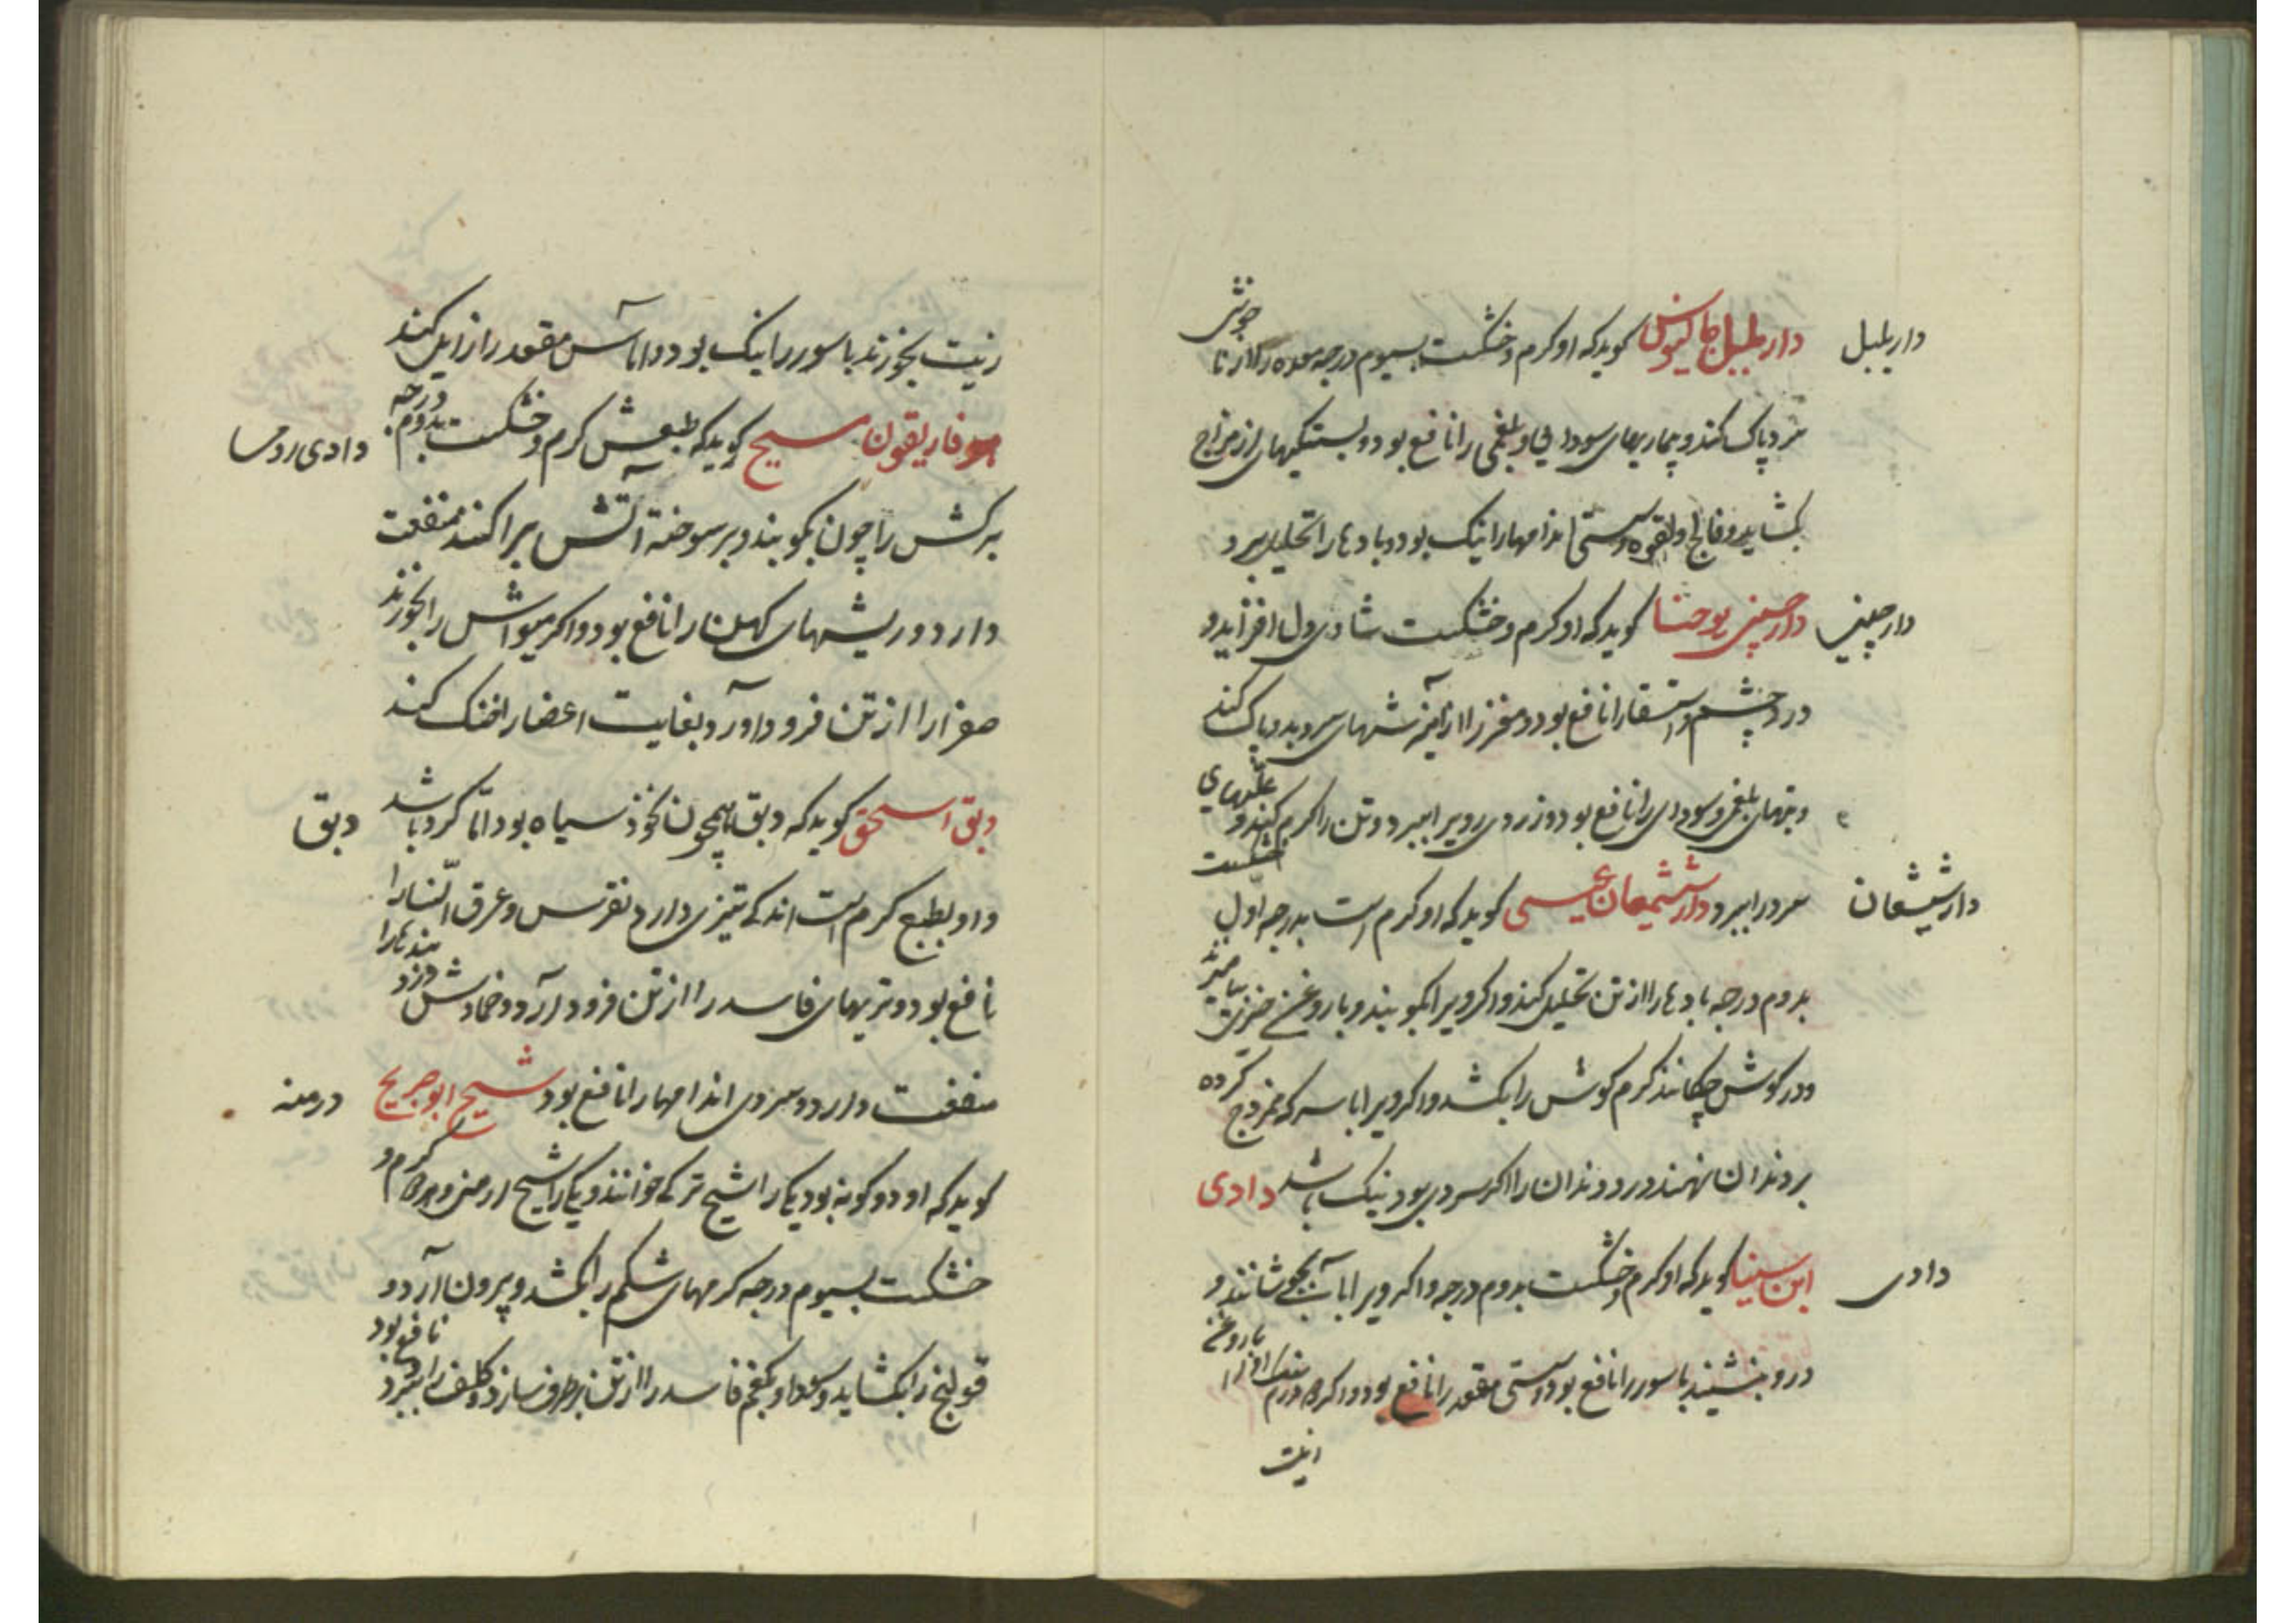 دار بلبل
دار بلبل جالینوس کوید که او کرم و خشکست بسیوم درجه معده را از تا خوشی
سرد پاک کند و بیماریهای سودایی و بلغمی را نافع بود و بستکیهای از مزاج
بکشاید و فالج و لقوه و سستی اندامها را نیک بود و بادها را تحلیل برد
دار چینی
دار چینی یوحنا کوید که او کرم و خشکست شادی دل افزاید و
درد چشم و استسقا را نافع بود و مغز را از آمیزشهای سرد و بد پاک کند
و تبهای بلغمی و سودای را نافع بود و زردی روی را ببرد و تن را کرم کند و علتهای
خشکست
دار شیشعان
سرد را ببرد دار شیشعان عیسی کوید که او کرم است بدرجه اول
بدوم درجه بادها را از تن تحلیل کند و اکر ویرا بکوبند و با روغن خیری بیامیزند
و در کوش چکانند کرم کوش را بکشد و اکر ویرا با سرکه ممزوج کرده
بر دندان نهند درد دندان را اکر سردی بود نیک باشد دادی
دادی
ابن سینا کوید که او کرم و خشکست بدوم درجه و اکر ویرا با آب بجوشانند و
درو بنشیند باسور را نافع بود و سستی مقعد را نافع بود و اکر درم سنک او را با روغن
زیت
زیت بخورند باسور را نیک بود و اماس مقعد را زایل کند
دادی رومی
هوفاریقون مسیح کوید که طبعش کرم و خشکست بدوم درجه
برکش را چون بکوبند و بر سوخته آتش پراکنند منفعت
دارد و ریشهای کهن را نافع بود و اکر میوه اش را بخورند
صفرا را از تن فرود آورد و بغایت اعضا را خنک کند
دبق
دبق اسحق کوید که دبق همچون نخود سیاه بود اما کرد باشد
و او بطبع کرم است اندکی تیزی دارد نقرس و عرق النسا را
نافع بود و تریهای فاسد را از تن فرود آرد و ضمادش درد بندها را
درمنه
منفعت دارد و سردی اندامها را نافع بود شیح ابو جریح
کوید که او دو کونه بود یکی را شیح ترکی خوانند و یکی را شیح ارمنی و هر دو کرم و
خشکست بسیوم درجه کرمهای شکم را بکشد و بیرون آرد و
قولنج را بکشاید و سودا و بلغم فاسد را از تن برطرف سازد و کلف را ببرد نافع بود